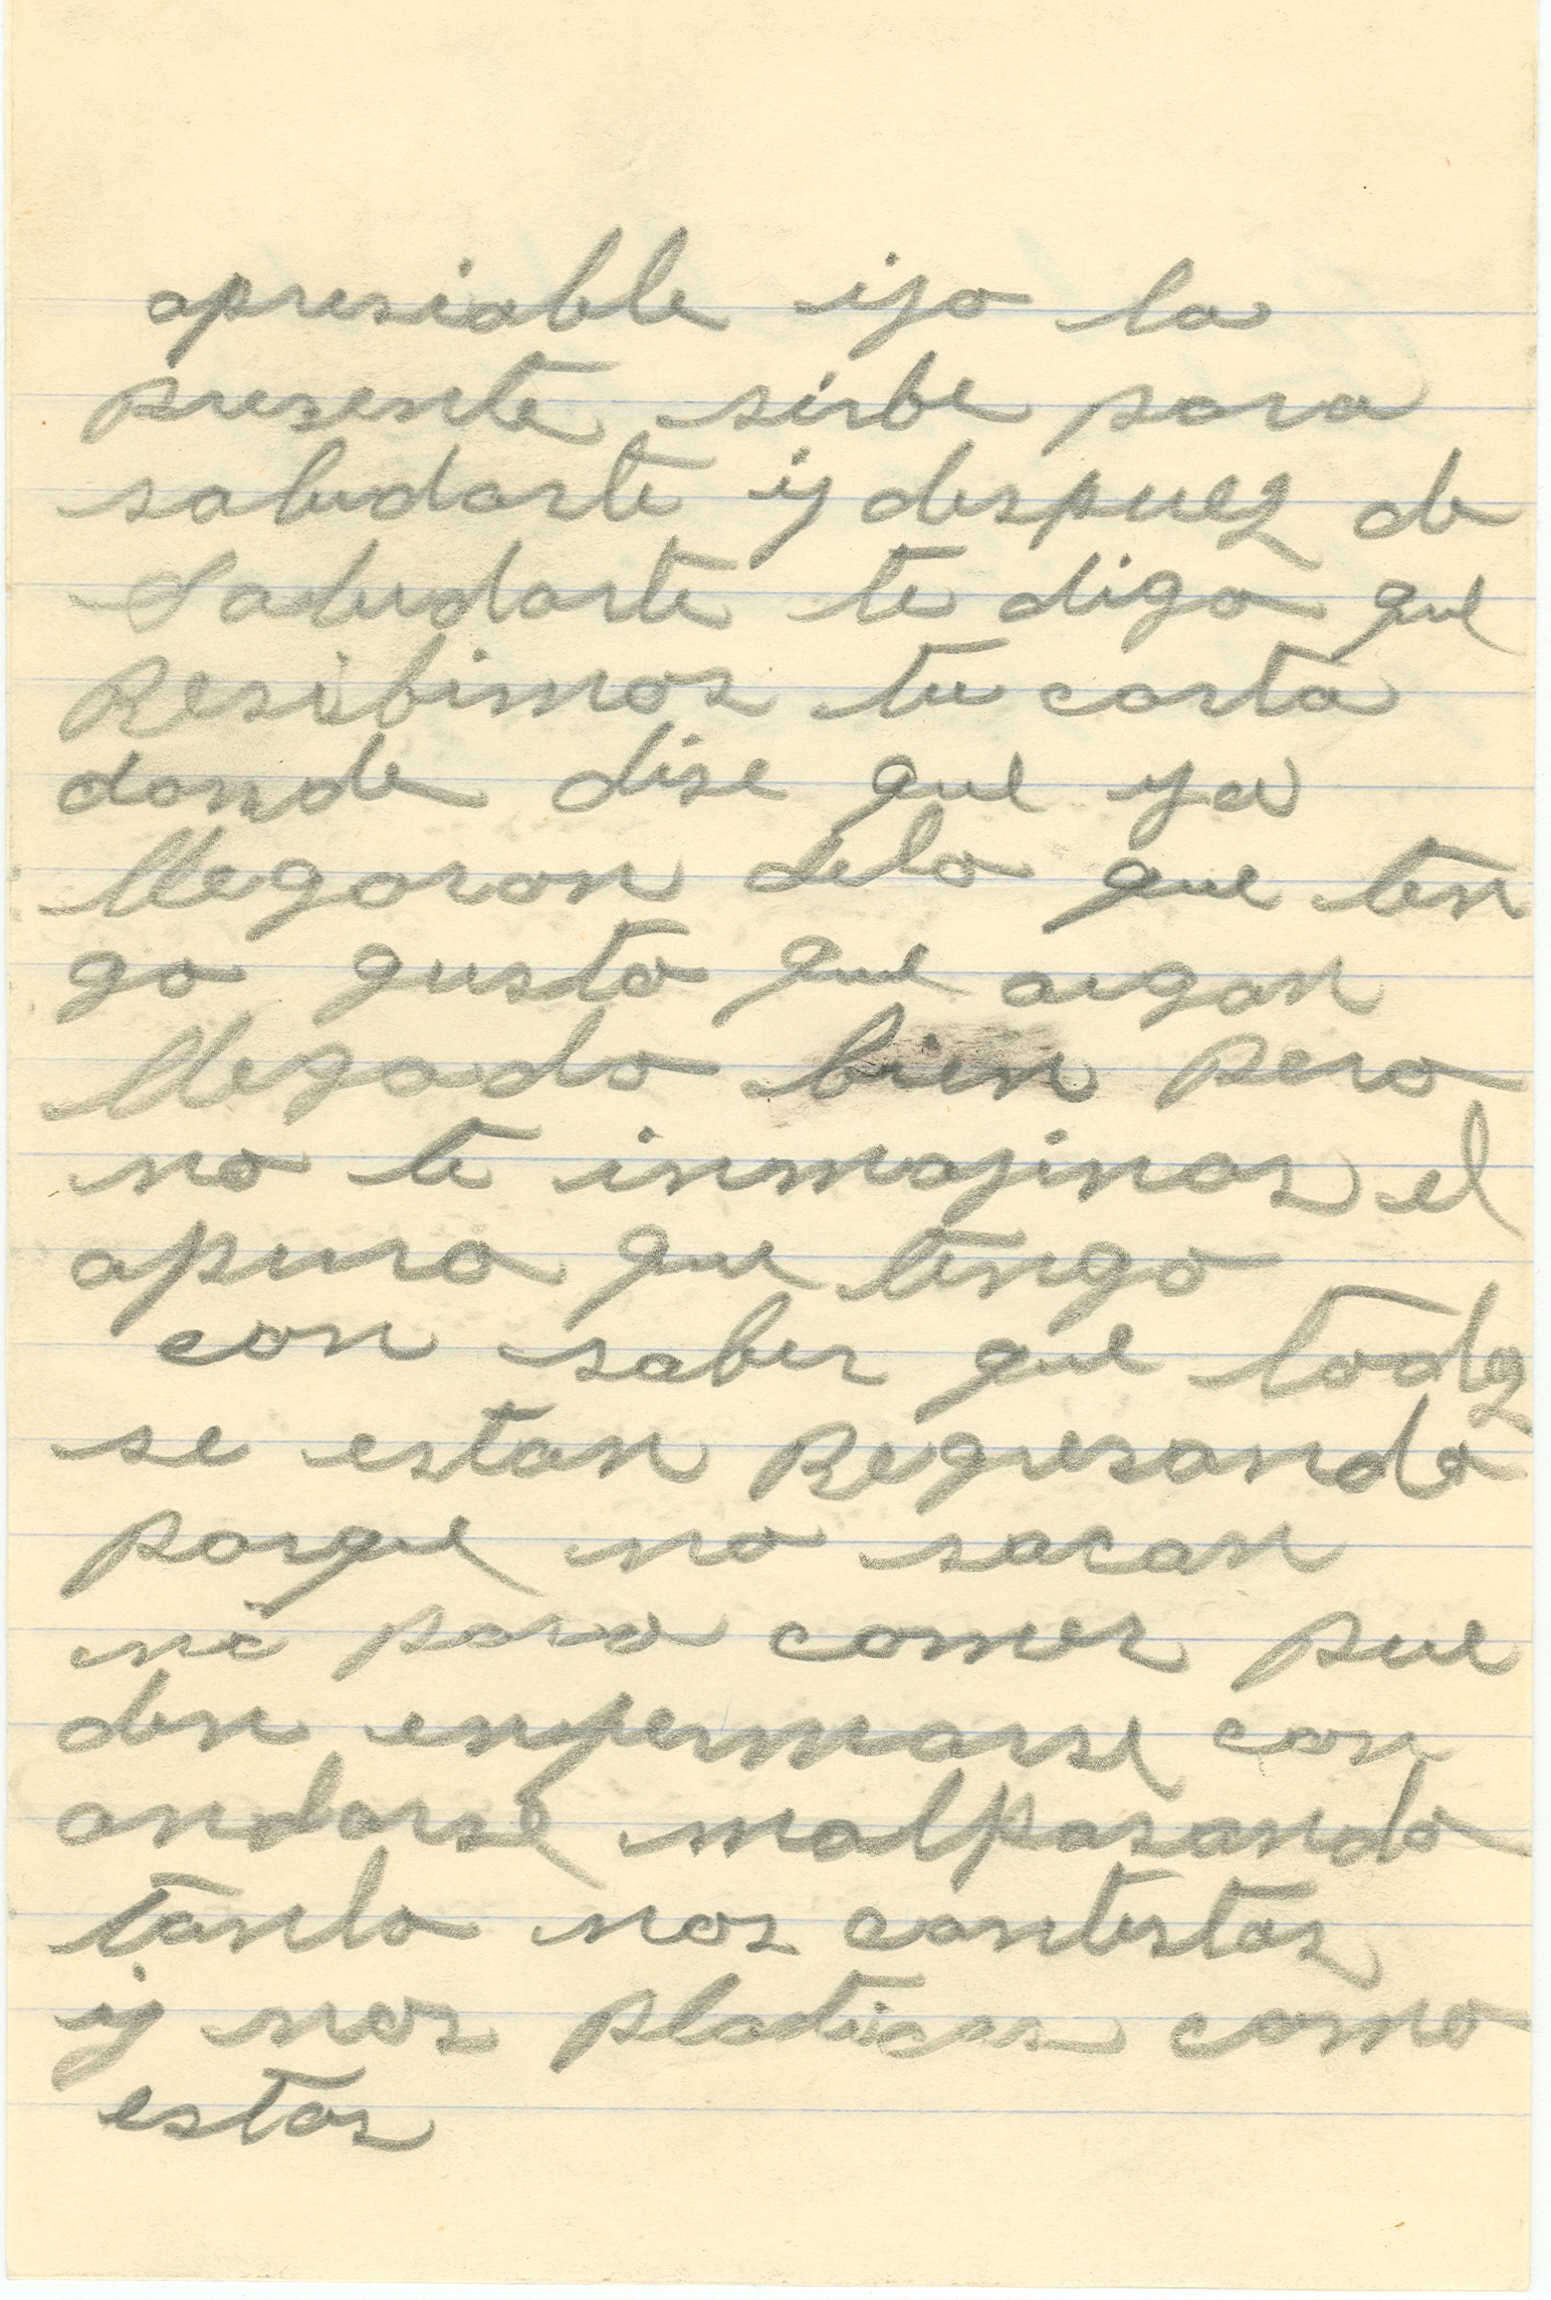 apresiable ijo la
presente sirbe para
saludarte y despuez de
Saludarte te digo que
Resibimos tu carta
donde dise que ya
llegaron delo que ten
go gusto que aigan
llegado bien pero
no te inmajinas el
apuro que tengo
con saber que todoz
se estan Regresando
porque no sacan
ni para comer pue
den enfermarse con
andarse malpasando
tanto nos contestas
y nos platicas como
estas